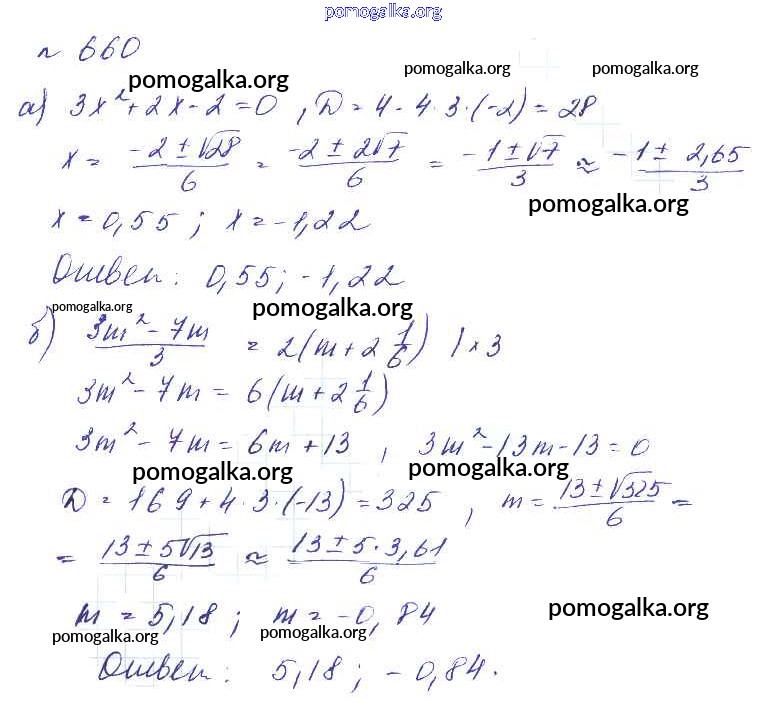 pomogalka.org
n 660
pomogalka.org pomogalka.org pomogalka.org
а) 3x² + 2x - 2 = 0 , D = 4 - 4·3·(-2) = 28
x = (-2 ± √28)/6 = (-2 ± 2√7)/6 = (-1 ± √7)/3 ≈ (-1 ± 2,65)/3
pomogalka.org
x = 0,55 ; x = -1,22
Ответ: 0,55; -1,22
pomogalka.org pomogalka.org
б) (3m² - 7m)/3 = 2(m + 2 1/6) | × 3
3m² - 7m = 6(m + 2 1/6)
3m² - 7m = 6m + 13 , 3m² - 13m - 13 = 0
pomogalka.org pomogalka.org
D = 169 + 4·3·(-13) = 325 , m = (13 ± √325)/6 =
= (13 ± 5√13)/6 ≈ (13 ± 5·3,61)/6
pomogalka.org
m = 5,18 ; m = -0,84
pomogalka.org pomogalka.org
Ответ: 5,18 ; -0,84.